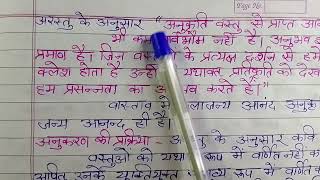 Page No.
अरस्तु के अनुसार "अनुकृति वस्तु से प्राप्त आ
भी कम सार्वभौम नहीं है। अनुभव इ
प्रमाण है। जिन वस् के प्रत्यक्ष दर्शन से हमे
क्लेश होता है उन्ही यथावत प्रतिकृति को देख
हम प्रसन्नता का अ करते हैं।"
वास्तव में लाजन्य आनंद अनुक
जन्य आनन्द ही है।
अनुकरण की प्रक्रिया - अ तु के अनुसार कवि
वस्तुओं को यथा रूप में वर्णित नही क
अपितु उनके युक्तियुक्त में